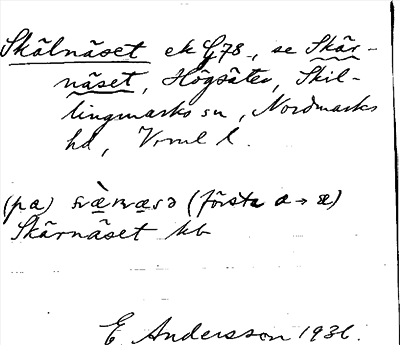 Skälnäset ek G78, se Skär-
näset, Högsäter, Skil-
lingmarks sn, Nordmarks
hd, Vrml l.
(pa) (första a → æ)
Skärnäset kb
E Andersson 1936.